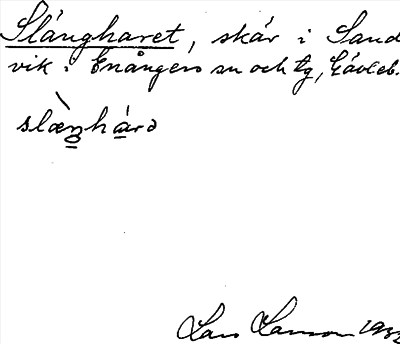 Slångharet, skär i Sand
vik i Enångers sn och tg, Gävleb.
slæŋhárə
Lars Larsson 1932